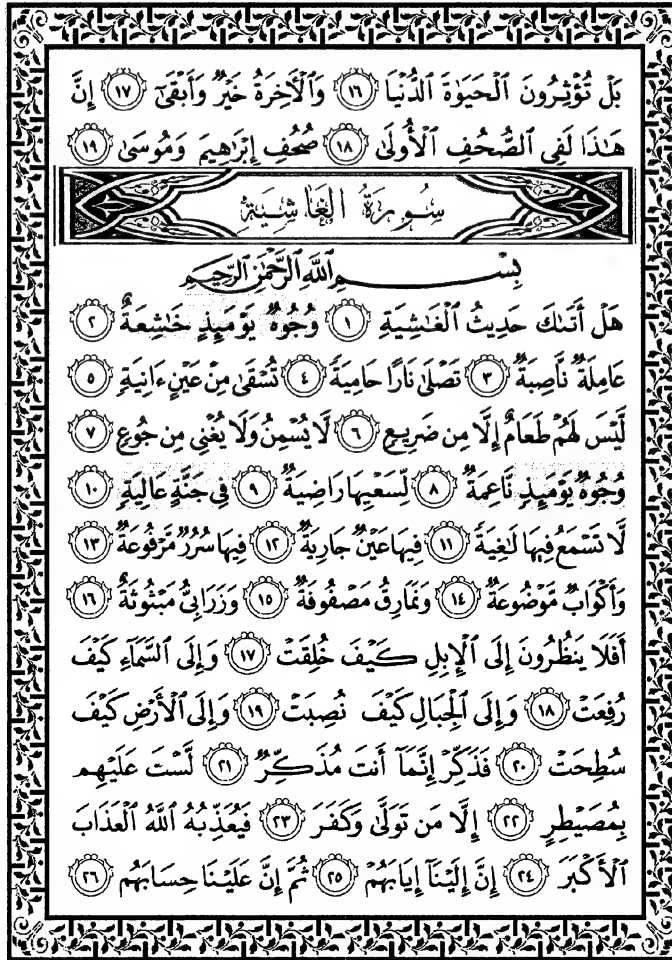 بَلْ تُؤْثِرُونَ ٱلْحَيَوٰةَ ٱلدُّنْيَا ١٦ وَٱلْءَاخِرَةُ خَيْرٌ وَأَبْقَىٰٓ ١٧ إِنَّ
هَٰذَا لَفِى ٱلصُّحُفِ ٱلْأُولَىٰ ١٨ صُحُفِ إِبْرَٰهِيمَ وَمُوسَىٰ ١٩
سُورَةُ الغَاشِيَةِ
بِسْمِ اللَّهِ الرَّحْمَٰنِ الرَّحِيمِ
هَلْ أَتَىٰكَ حَدِيثُ ٱلْغَٰشِيَةِ ١ وُجُوهٌ يَوْمَئِذٍ خَٰشِعَةٌ ٢
عَامِلَةٌ نَّاصِبَةٌ ٣ تَصْلَىٰ نَارًا حَامِيَةً ٤ تُسْقَىٰ مِنْ عَيْنٍ ءَانِيَةٍ ٥
لَّيْسَ لَهُمْ طَعَامٌ إِلَّا مِن ضَرِيعٍ ٦ لَّا يُسْمِنُ وَلَا يُغْنِى مِن جُوعٍ ٧
وُجُوهٌ يَوْمَئِذٍ نَّاعِمَةٌ ٨ لِّسَعْيِهَا رَاضِيَةٌ ٩ فِى جَنَّةٍ عَالِيَةٍ ١٠
لَّا تَسْمَعُ فِيهَا لَٰغِيَةً ١١ فِيهَا عَيْنٌ جَارِيَةٌ ١٢ فِيهَا سُرُرٌ مَّرْفُوعَةٌ ١٣
وَأَكْوَابٌ مَّوْضُوعَةٌ ١٤ وَنَمَارِقُ مَصْفُوفَةٌ ١٥ وَزَرَابِىُّ مَبْثُوثَةٌ ١٦
أَفَلَا يَنظُرُونَ إِلَى ٱلْإِبِلِ كَيْفَ خُلِقَتْ ١٧ وَإِلَى ٱلسَّمَآءِ كَيْفَ
رُفِعَتْ ١٨ وَإِلَى ٱلْجِبَالِ كَيْفَ نُصِبَتْ ١٩ وَإِلَى ٱلْأَرْضِ كَيْفَ
سُطِحَتْ ٢٠ فَذَكِّرْ إِنَّمَآ أَنتَ مُذَكِّرٌ ٢١ لَّسْتَ عَلَيْهِم
بِمُصَيْطِرٍ ٢٢ إِلَّا مَن تَوَلَّىٰ وَكَفَرَ ٢٣ فَيُعَذِّبُهُ ٱللَّهُ ٱلْعَذَابَ
ٱلْأَكْبَرَ ٢٤ إِنَّ إِلَيْنَآ إِيَابَهُمْ ٢٥ ثُمَّ إِنَّ عَلَيْنَا حِسَابَهُم ٢٦